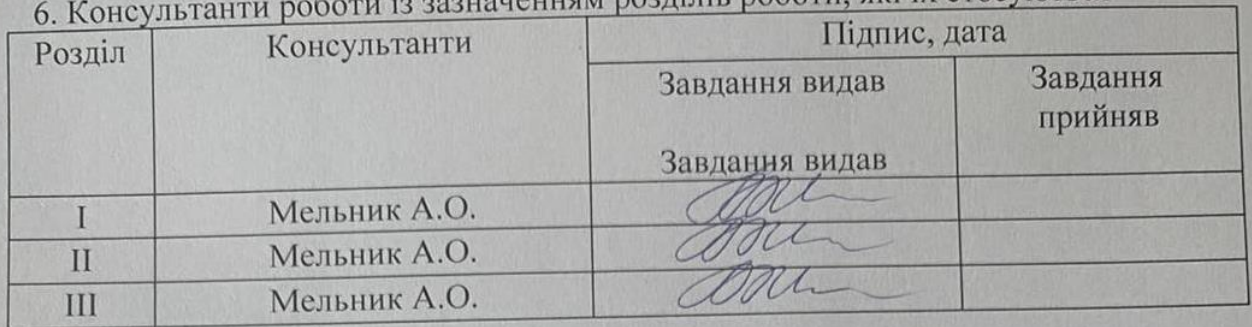 6. Консультанти роботи із зазначенням розділів роботи, які їх
Розділ Консультанти Підпис, дата
Завдання видав Завдання
прийняв
Завдання видав
I Мельник А.О.
II Мельник А.О.
III Мельник А.О.